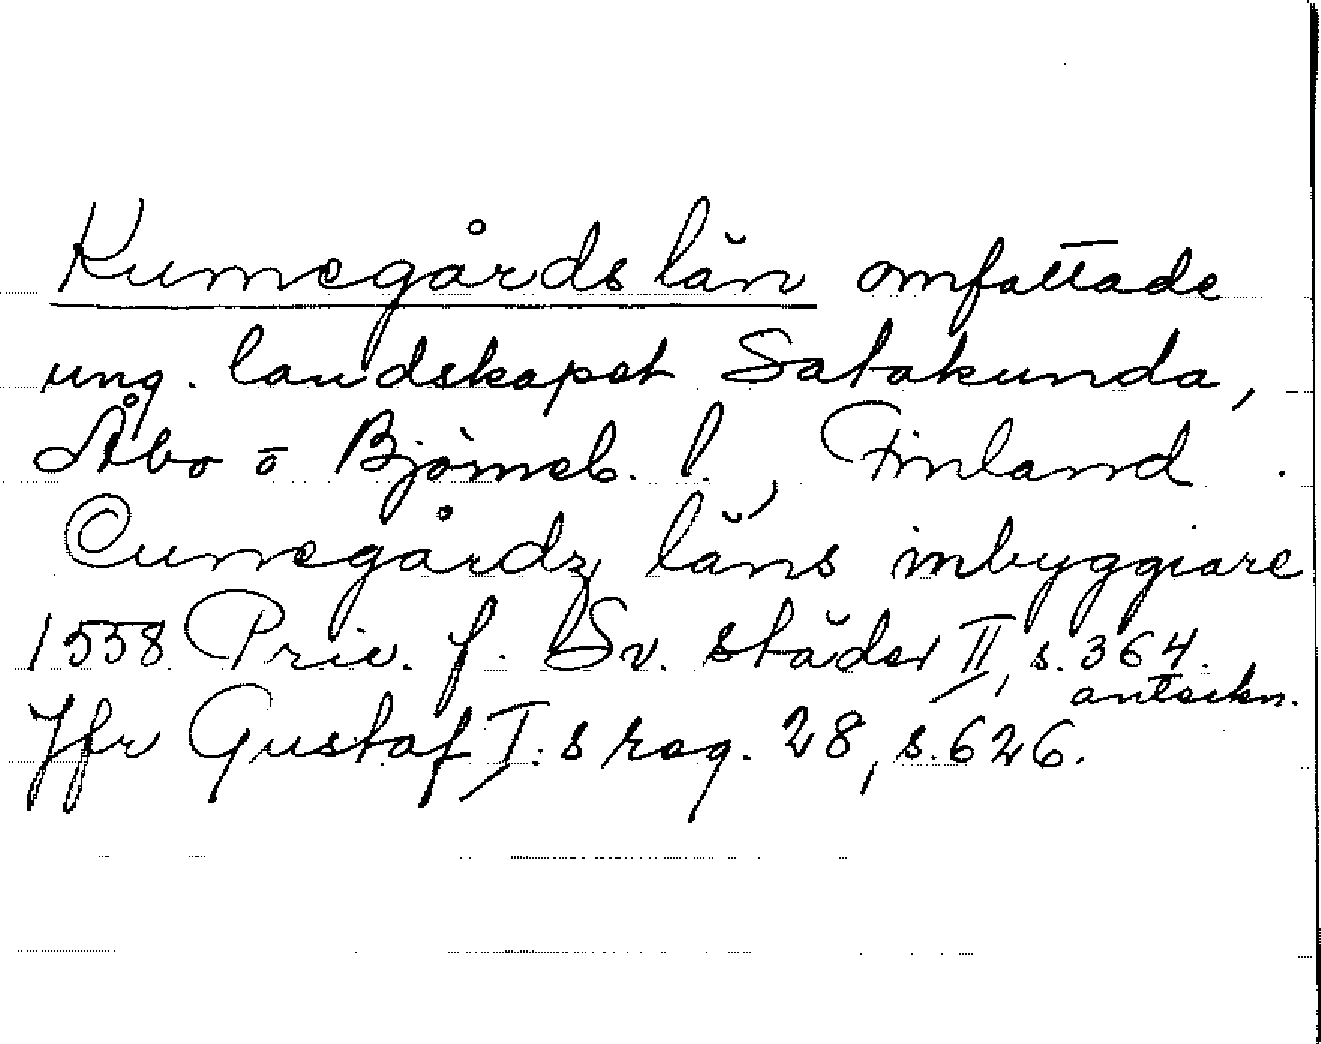 Kumegårds län omfattade
ung. landskapet Satakunda,
Åbo o Björneb. l., Finland.
Cumegårdz läns inbyggiare
1558 Priv. f. Sv. städer II, s. 364.
anteckn.
Jfr Gustaf I:s reg. 28, s. 626.